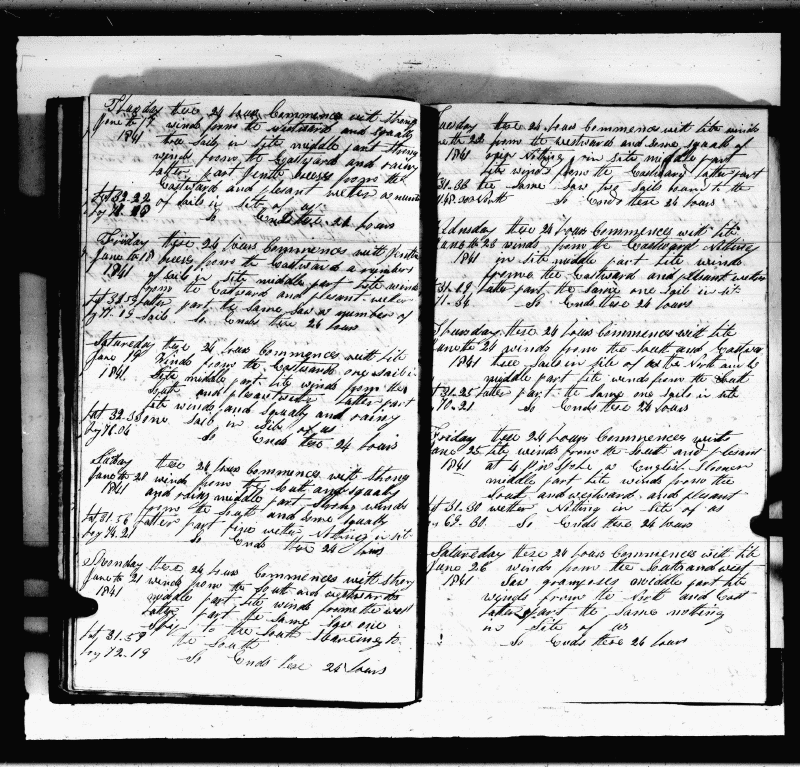 Thursday these 24 hours Commences with strong
June th 17 winds from the westward and squaly
1841 three Sails in site middle part strong
winds from the Eastward and rainy
latter part finite breeses from the
Eastward and plesant wether a number
Lat 32.22 of sails in site of us
Log 76.18 So Ends these 24 hours
Friday these 24 hours Commences with finite
June th 18 breeses from the Eastwards a number
1841 of sails in site middle part lite winds
from the Eastward and plesant wether
Lat 32.52 latter part the same saw a number of
Log 77.19 sails So Ends these 24 hours
Saturday these 24 hours Commences with lite
June 19 winds from the Eastwards one sail in
1841 site middle part lite winds from the
South and plesant wether latter part
lite winds and squaly and rainy
Lat 32.35 one sail in site of us
Log 76.04 So Ends these 24 hours
Sunday these 24 hours Commences with strong
June th 20 winds from the South and squaly
1841 and rainy middle part strong winds
from the South and some squaly
Lat 31.56 latter part fine wether Nothing in sit
Log 74.21 So Ends these 24 hours
Monday these 24 hours Commences with strong
June th 21 winds from the South and westwards
1841 middle part lite winds from the west
latter part the same saw one
Ship to the South stearing to
Lat 31.59 the South
Log 72.19 So Ends these 24 hours
Tuesday these 24 hours Commences with lite winds
June th 22 from the westward and some squals of
1841 Nothing in site middle part
lite winds from the Eastward latter part
31.33 the same saw two Sails bound to the
North So Ends these 24 hours
Wednsday these 24 hours Commences with lite
June th 23 winds from the Eastward Nothing
1841 in site middle part lite winds
from the Eastward and plesant wether
31.29 latter part the same one sail in sit
71.34 So Ends these 24 hours
Thursday these 24 hours Commences with lite
June th 24 winds from the South and Eastward
1841 three Sails in site of us to North and to
middle part lite winds from the East
Lat 31.25 latter part the same one sail in site
70.21 So Ends these 24 hours
Friday these 24 hours Commences with
June 25 lite winds from the South and plesant
1841 at 4 P M Spoke a English Sloner
middle part lite winds from the
South and westward and plesant
Lat 31.30 wether Nothing in site of us
69.30 So Ends these 24 hours
Saturday these 24 hours Commences with lite
June 26 winds from the South and west
1841 Saw middle part lite
winds from the North and East
latter part the same nothing
in site of us
So Ends these 24 hours